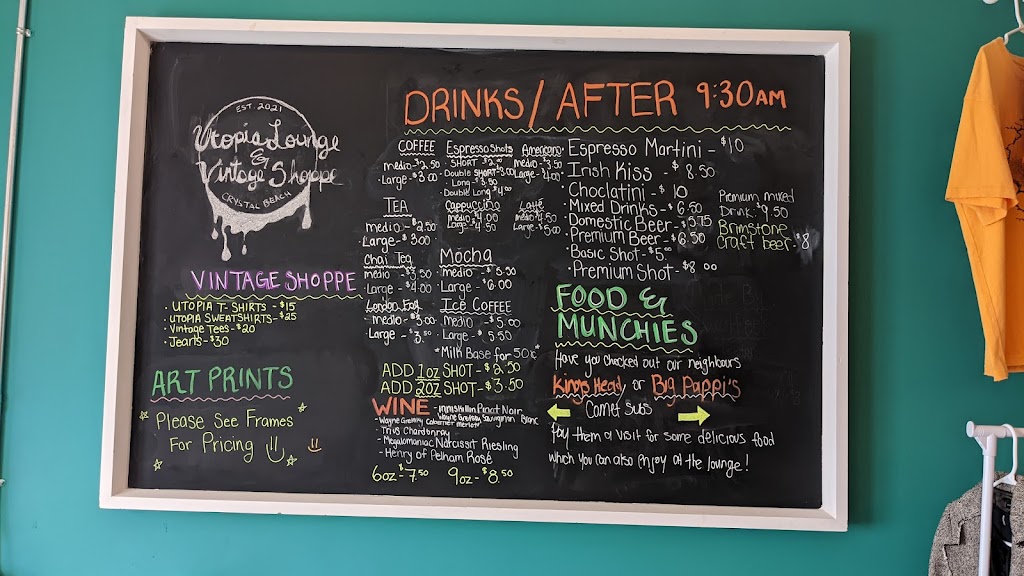 EST 2021
Utopia Lounge
&
Vintage Shoppe
CRYSTAL BEACH
VINTAGE SHOPPE
· UTOPIA T-SHIRTS - $15
· UTOPIA SWEATSHIRTS - $25
· Vintage Tees - $20
· Jeans - $30
ART PRINTS
Please See Frames
For Pricing
DRINKS/AFTER 9:30AM
COFFEE
medio - $2.50
Large - $3.00
TEA
medio - $2.50
Large - $3.00
Chai Tea
medio - $3.50
Large - $4.00
London Fog
medio - $3.00
Large - $3.50
Espresso Shots
SHORT $2.00
Double SHORT $3.00
Long - $3.50
Double Long $4.00
Cappuccino
medio $4.00
Large $4.50
Americano
medio - $3.50
Large - $4.00
Latté
medio $4.50
Large - $5.00
Mocha
medio - $5.50
Large - $6.00
Ice COFFEE
medio - $5.00
Large - $5.50
*Milk Base for 50¢*
ADD 1oz SHOT - $2.50
ADD 2oz SHOT - $3.50
WINE - Inniskillin Pinot Noir
- Wayne Gretzky Sauvignon Blanc
- Wayne Gretzky Cabernet merlot
- Trius Chardonnay
- Megalomaniac Narcissit Riesling
- Henry of Pelham Rosé
6oz - $7.50 9oz - $8.50
· Espresso Martini - $10
· Irish Kiss - $8.50
· Choclatini - $10
· Mixed Drinks - $6.50
· Domestic Beer - $5.75
· Premium Beer - $6.50
· Basic Shot - $5.00
· Premium Shot - $8.00
Premium mixed
Drink $9.50
Brimstone
Craft beer - $8
FOOD &
MUNCHIES
Have you checked out our neighbours
Kings Head or Big Pappi's
Comet Subs
Pay them a visit for some delicious food
which you can also enjoy at the lounge!